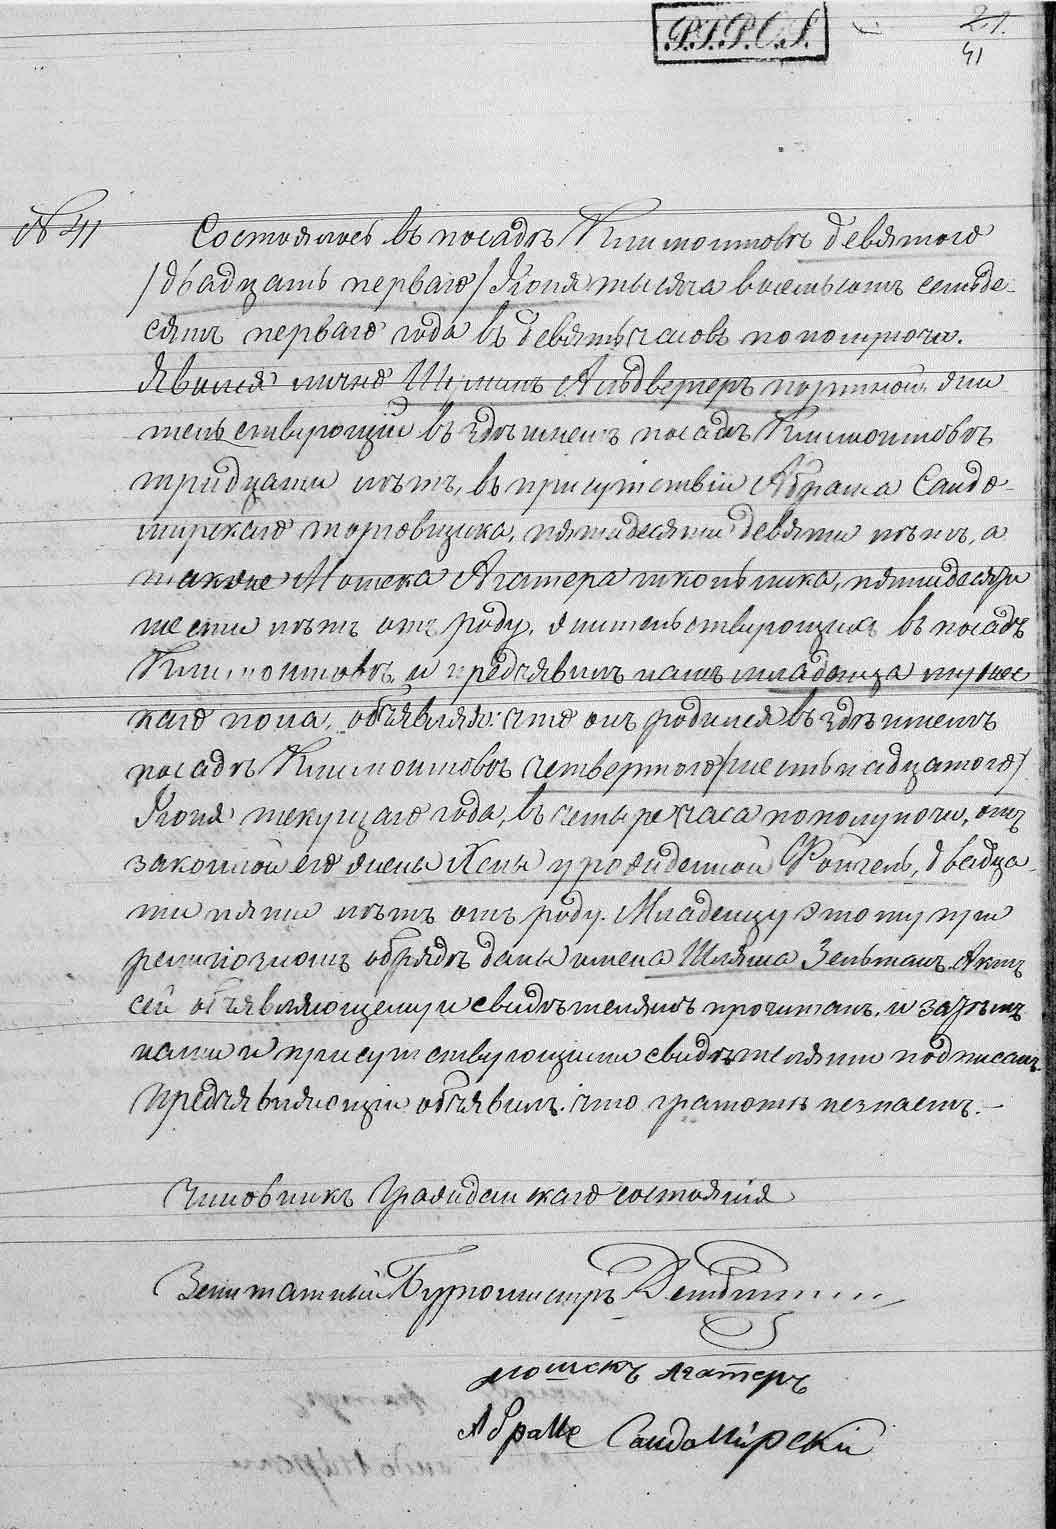 P.T.P.O.S.
21.
41
№ 41
Состоялось въ посадѣ Климонтовѣ девятого
/двадцать перваго/ Iюня тысяча восемьсотъ семьде-
сятъ перваго года въ девять часовъ пополуночи.
Явился лично Шулимъ Альдвергеръ портной, жи
тельствующій въ здѣшнемъ посадѣ Климонтовѣ
тридцати лѣтъ, въ присутствіи Абрама Сандо-
мирскаго торговщика, пятидесяти девяти лѣтъ, а
также Мошека Агатера школьника, пятидесяти
шести лѣтъ отъ роду, жительствующихъ въ посадѣ
Климонтовѣ, и предъявилъ намъ младенца мужес
каго пола, объявляя: что онъ родился въ здѣшнемъ
посадѣ Климонтовѣ четвертого/шестьнадцатого/
Iюня текущаго года, въ четыре часа пополуночи, отъ
законной его жены Хены урожденной Фоигель, двадца-
ти пяти лѣтъ отъ роду. Младенцу этому при
религiозномъ обрядѣ даны имена Шляма Зельманъ. Актъ
сей объявляющему и свидѣтелямъ прочитанъ, и затѣмъ
нами и присутствующими свидѣтелями подписанъ.
Предъявляющiй объявилъ что грамотѣ незнаетъ.—
Чиновникъ Гражданскаго состоянiя
Заштатный Бургомистръ
мошекъ Агатеръ
Абрамъ Сандомiрскiй